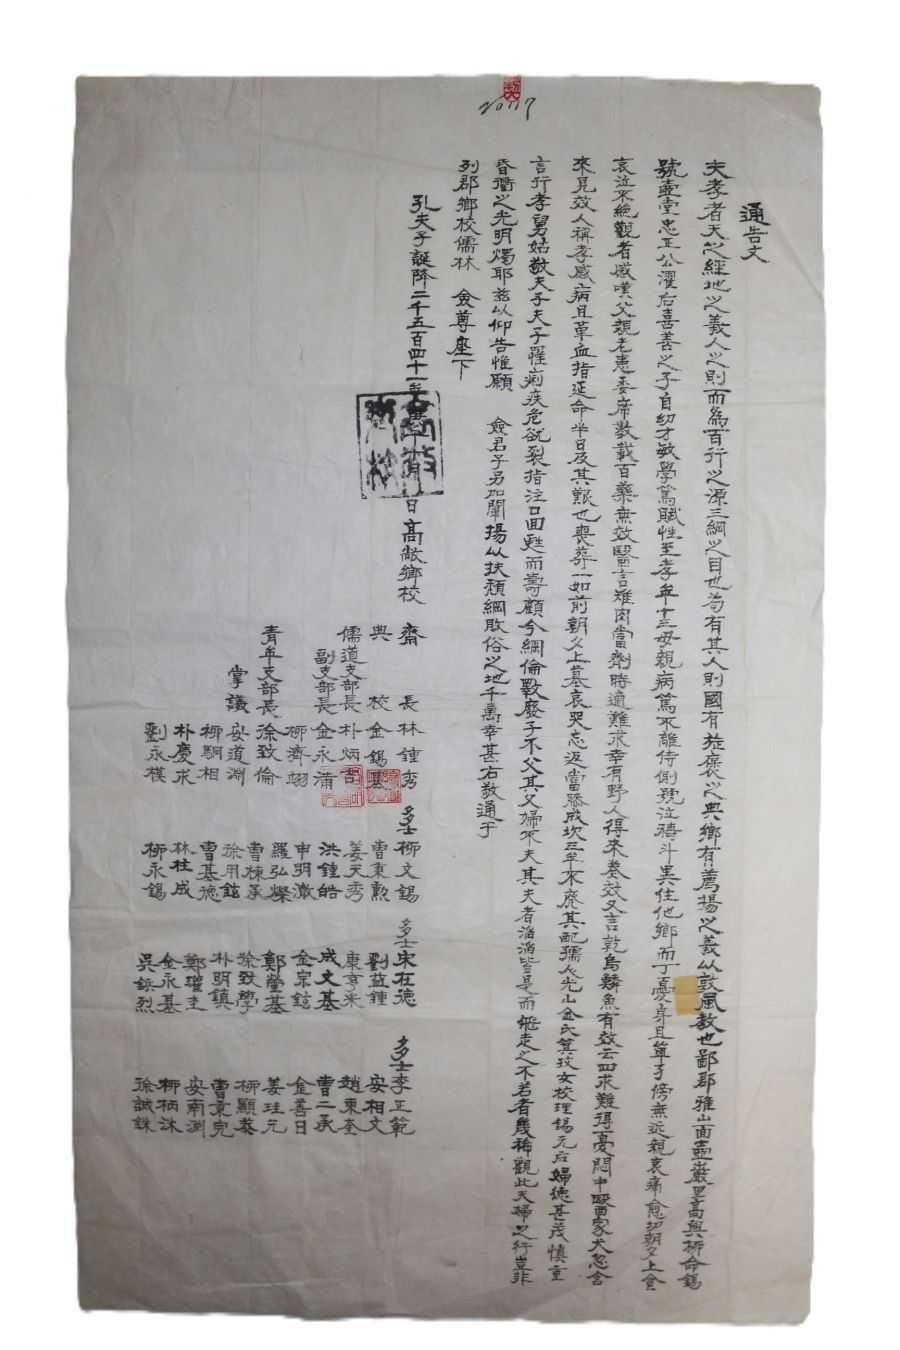 通告文
夫孝者天之經地之義人之則而爲百行之源三綱之目也苟有其人則國有旌褒之典鄕有薦揚之義以敦風敎也鄙郡雅山面壺巖里高興柳命錫
號壺堂忠正公濯后喜善之子自幼才敏學篤賦性至孝年十三母親病篤不離侍側號泣禱斗異住他鄕而丁憂身且單孑傍無近親哀痛愈切朝夕上食
哀泣不絶觀者感嘆父親老患委席數載百藥無效醫言雉肉當劑時適難求幸有野人得來養效又言乾烏鱗魚有效云四求難得憂悶中隣家犬忽含
來見效人稱孝感病且革血指延命半日及其艱也喪葬一如前朝夕上墓哀哭忘返當膝成坎三年不廢其配孺人光山金氏箕孜女校理錫元后婦德甚茂愼重
言行孝舅姑敬夫子夫子罹痢疾危欲裂指注口回甦而壽顧今綱倫斁廢子不父其父婦不夫其夫者滔滔皆是而飛走之不若者幾稀觀此夫婦之行豈非
昏衢之光明燭耶玆以仰告惟願 僉君子另加闡揚以扶頹綱敗俗之地千萬幸甚右敬通于
列郡鄕校儒林 僉尊座下
孔夫子誕降二千五百四十一年 月 日 高敞鄕校
齋長 林鍾秀
典校 金錫基
儒道支部長 朴炳吾
副支部長 金永蒲
柳濟翊
靑年支部長 徐致倫
掌議 安道淵
柳駉相
朴慶求
劉永樸
多士 柳文錫
曹秉勳
姜天秀
洪鍾皓
申明澈
羅弘燦
曹棟承
徐用鉉
曹基德
林柱成
柳永錫
多士 宋在德
劉益鍾
康亨采
成文基
金宗鉉
鄭瑩基
徐致學
朴明鎭
鄭瓘圭
金永基
吳鋲烈
多士 李正範
安相文
趙東奎
曹二承
金善日
姜珪元
柳顯泰
曹秉完
安南淵
柳柄沐
徐誠銖